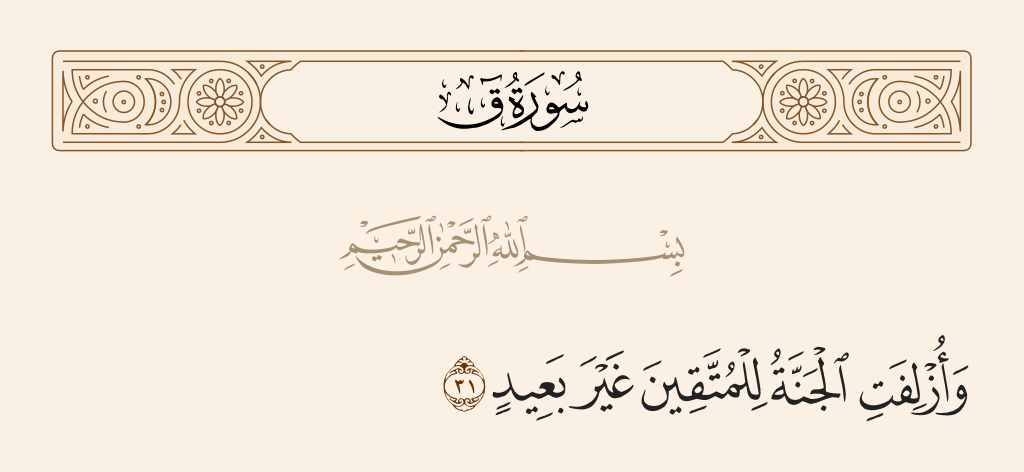 سُورَةُ قٓ
بِسْمِ ٱللَّهِ ٱلرَّحْمَٰنِ ٱلرَّحِيمِ
وَأُزْلِفَتِ ٱلْجَنَّةُ لِلْمُتَّقِينَ غَيْرَ بَعِيدٍ ٣١